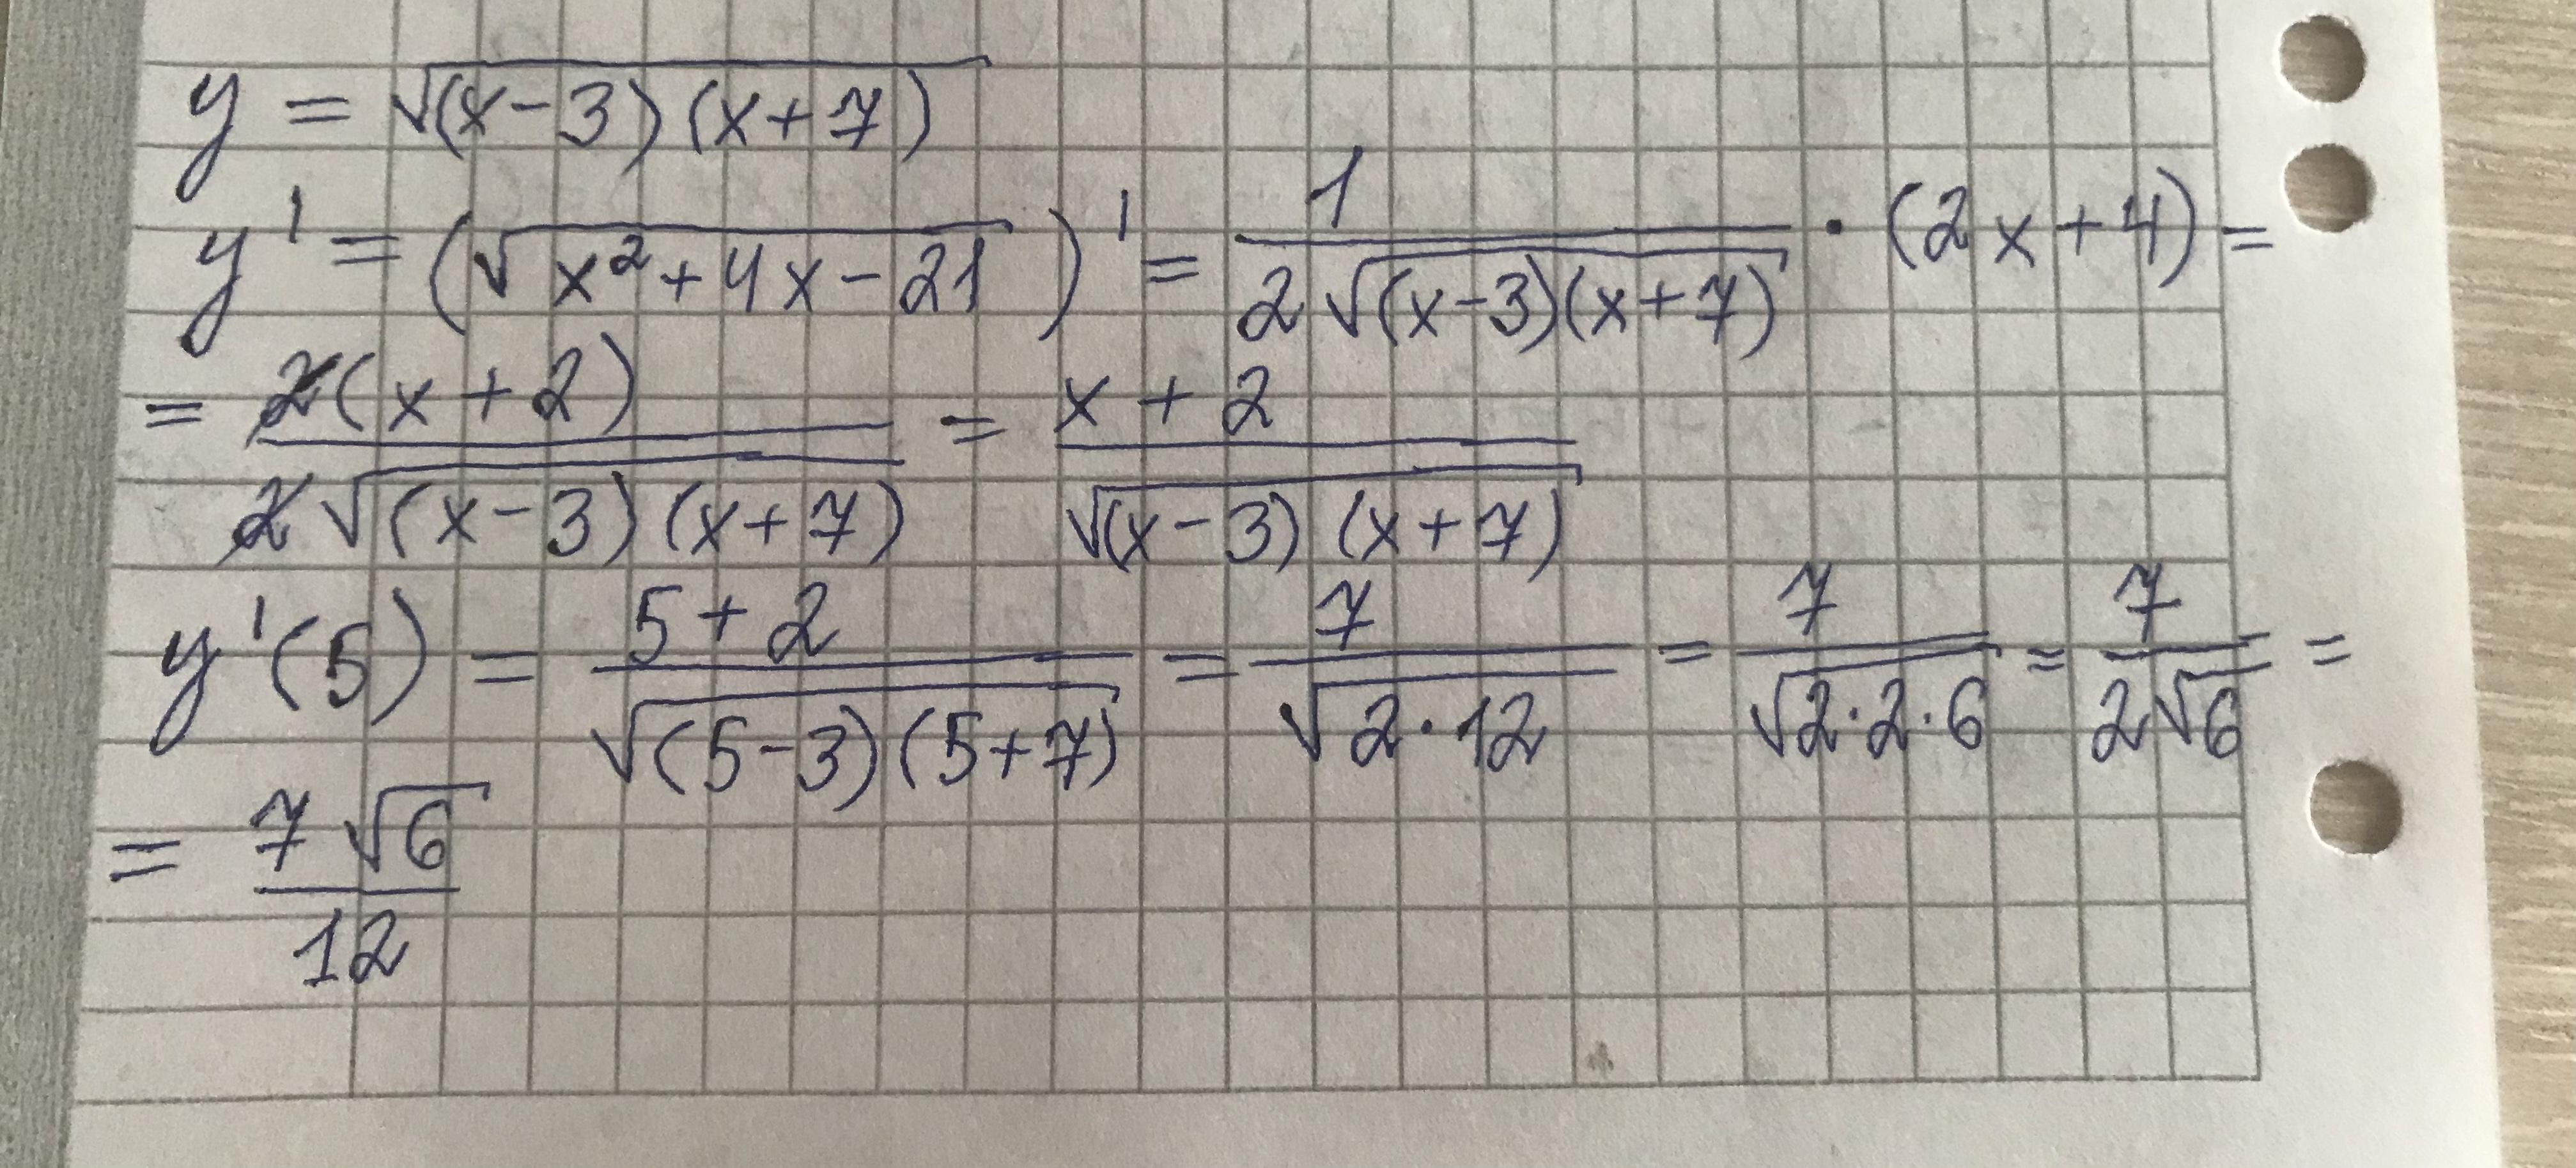 y = √((x-3)(x+7))
y' = (√(x²+4x-21))' = 1/(2√((x-3)(x+7))) · (2x+4) =
= 2(x+2)/(2√((x-3)(x+7))) = (x+2)/√((x-3)(x+7))
y'(5) = (5+2)/√((5-3)(5+7)) = 7/√(2·12) = 7/√(2·2·6) = 7/(2√6) =
= 7√6/12